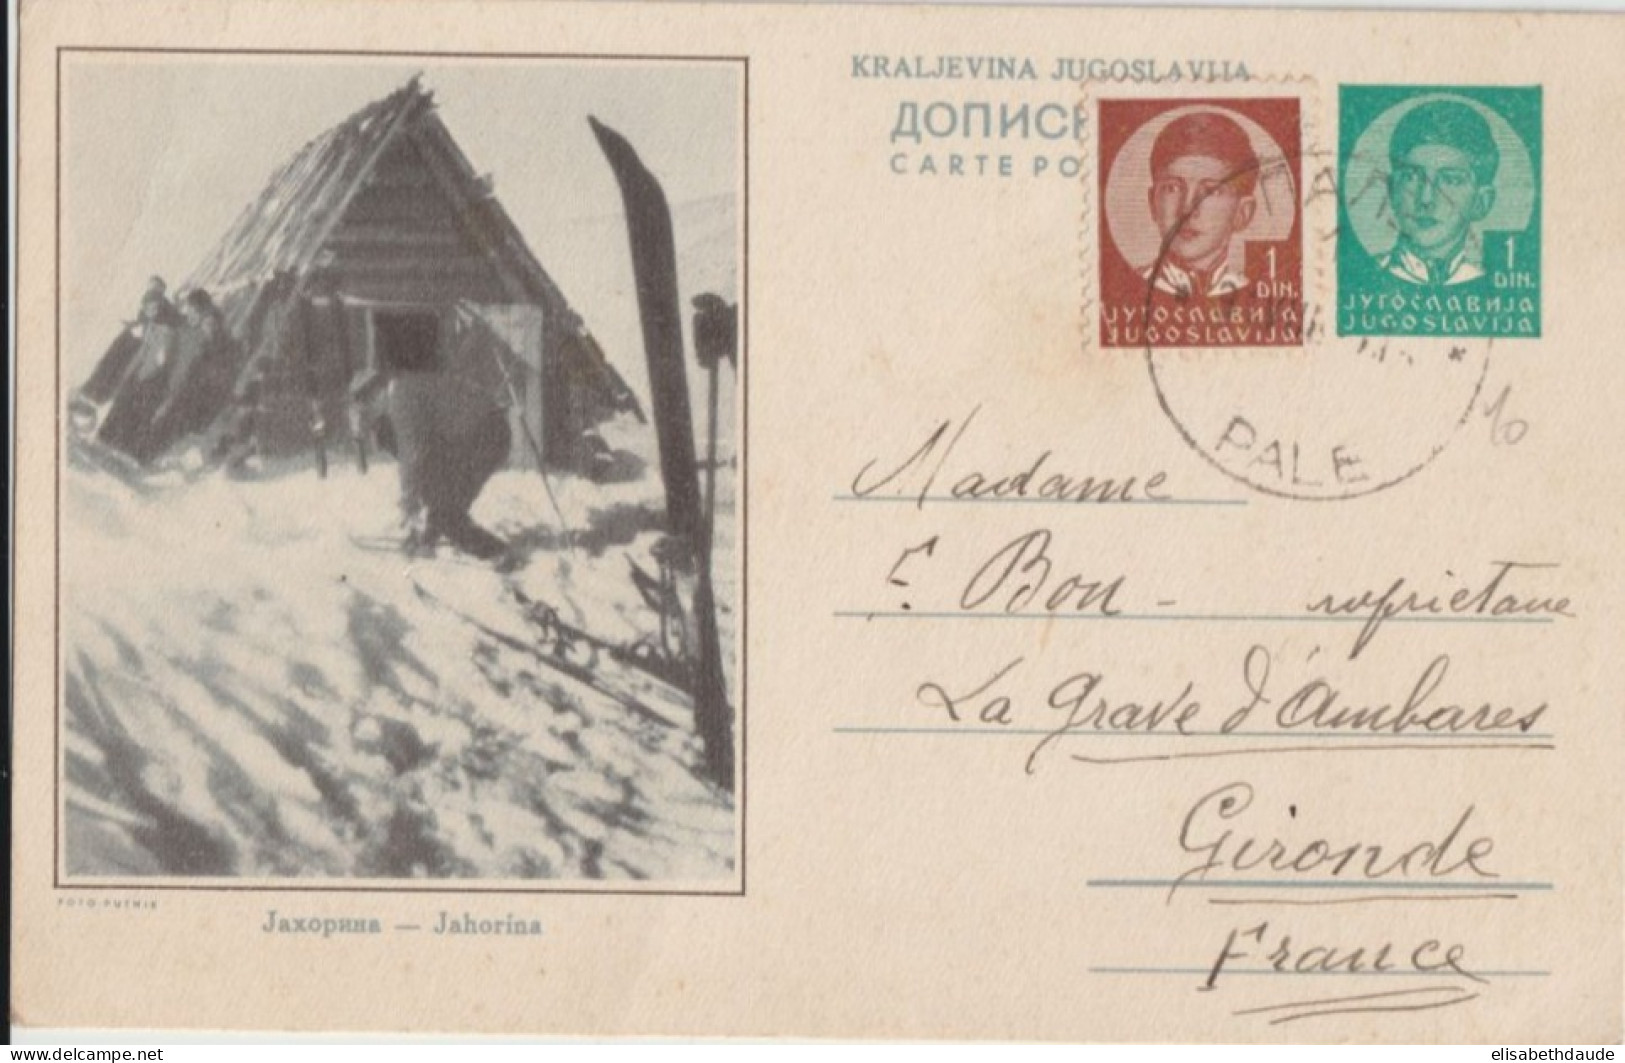 KRALJEVINA JUGOSLAVIJA
ДОПИС
CARTE PO
1
DIN.
ЈУГОСЛАВИЈА
JUGOSLAVIJA
1
DIN.
ЈУГОСЛАВИЈА
JUGOSLAVIJA
ПАЛЕ
PALE
10
Madame
F. Bon - 
La Grave d'Ambares
Gironde
France
FOTO-PUTNIK
Јахорина — Jahorina
www.delcampe.net
elisabethdaude